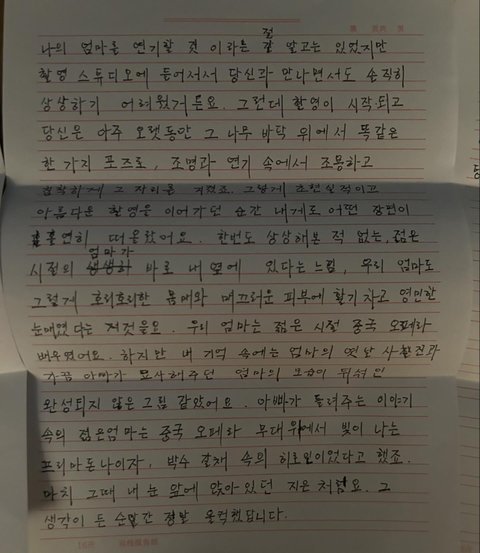 절
나의 엄마를 연기할 것 이라는 걸 알고는 있었지만
촬영 스튜디오에 들어서서 당신과 만나면서도 솔직히
상상하기 어려웠거든요. 그런데 촬영이 시작되고
당신은 아주 오랫동안 그 나무 바닥 위에서 똑같은
한 가지 포즈로, 조명과 연기 속에서 조용하고
침착하게 그 자리를 지켰죠. 그렇게 초현실적이고
아름다운 촬영을 이어가던 순간 내게도 어떤 장면이
홀연히 떠올랐어요. 한번도 상상해본 적 없는, 젊은
엄마가
시절의 바로 내 옆에 있다는 느낌, 우리 엄마도
그렇게 호리호리한 몸매와 매끄러운 피부에 활기 차고 영민한
눈매였다는 저것을요. 우리 엄마는 젊은 시절 중국 오페라
배우였어요. 하지만 내 기억 속에는 엄마의 옛날 사진과
가끔 아빠가 묘사해주던 엄마의 모습이 뒤섞인
완성되지 않은 그림 같았어요. 아빠가 들려주는 이야기
속의 젊은엄마는 중국 오페라 무대 위에서 빛이 나는
프리마돈나이자, 박수 갈채 속의 히로인이었다고 했죠.
마치 그때 내 눈 앞에 앉아있던 지은 처럼요. 그
생각이 든 순간 정말 울컥했답니다.